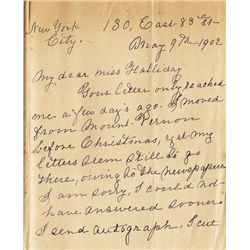 New York 130, East 83 St
City. May 9th 1902
My dear Miss Halliday
Your letter only reached
me a few day's ago. I moved
from Mount Vernon
before Christmas, yet my
letters seem still to go
there, owing to the newspapers
I am sorry, I could not
have answered sooner.
I send autograph, I cut